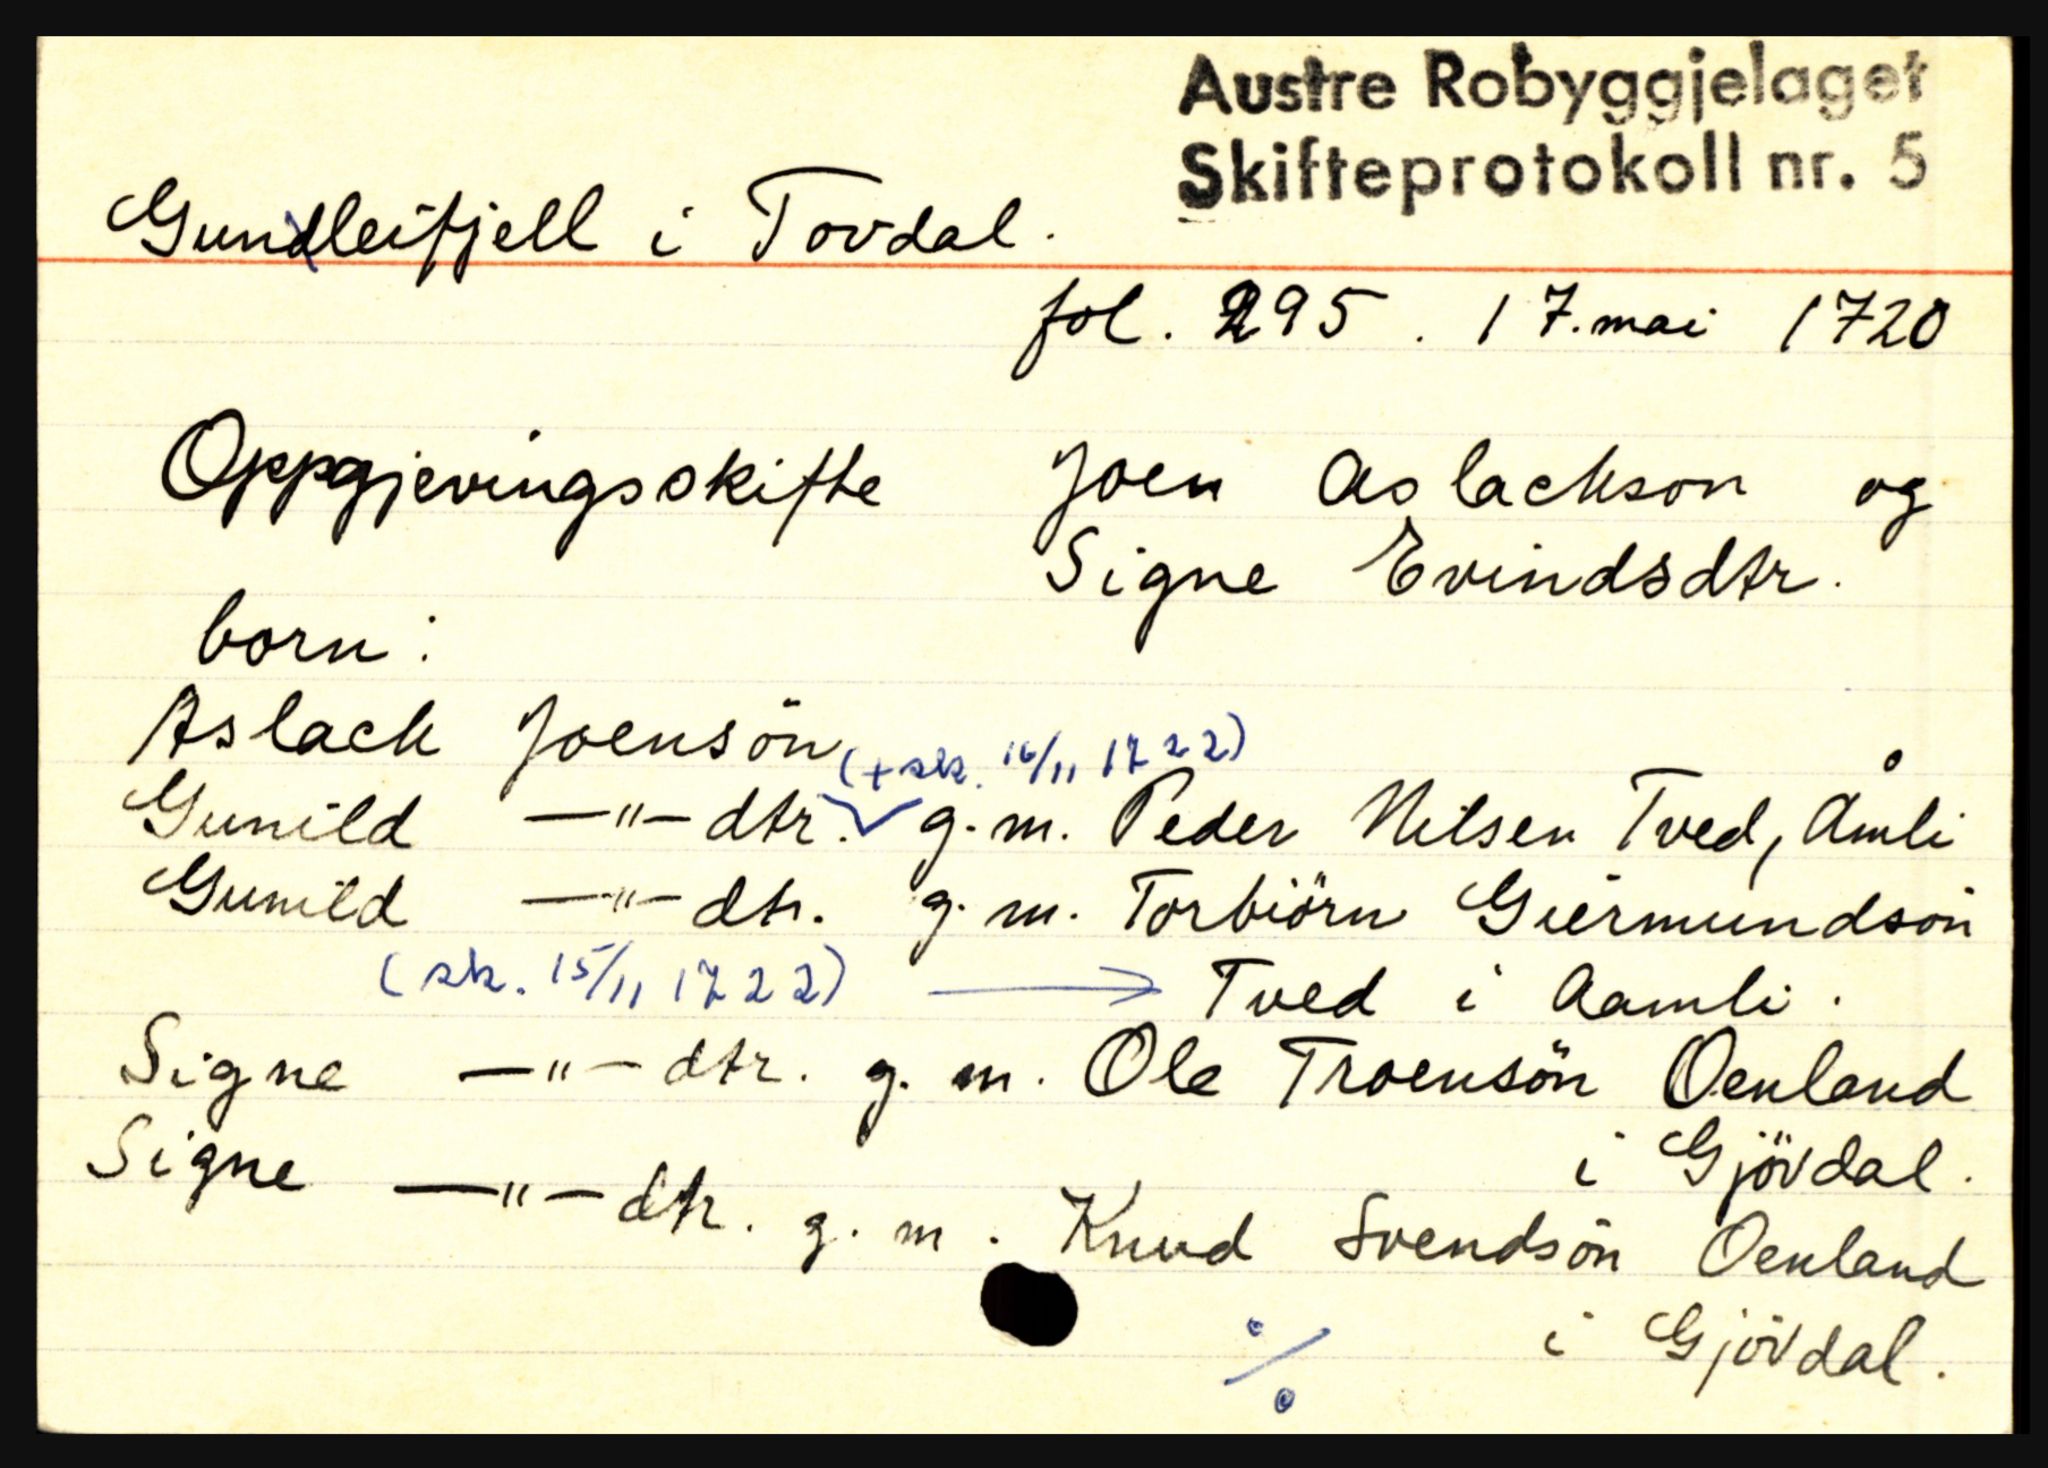 Austre Robyggjelaget
Skifteprotokoll nr. 5
Gundleifjell i Tovdal.
fol. 295. 17. mai 1720
Oppgjevingsskifte Joen Aslackson og
Signe Evindsdtr.
born:
Aslack Joensön
(+ sk. 16/11 1722)
Gunild —"— dtr. g.m. Peder Nilsen Tved, Åmli
Gunild —"— dtr. g.m. Torbiörn Giermundsön
(sk. 15/11 1722) → Tved i Aamli.
Signe —"— dtr. g.m. Ole Troensön Oenland
i Gjövdal.
Signe —"— dtr. g.m. Knud Svendsön Oenland
i Gjövdal.
%